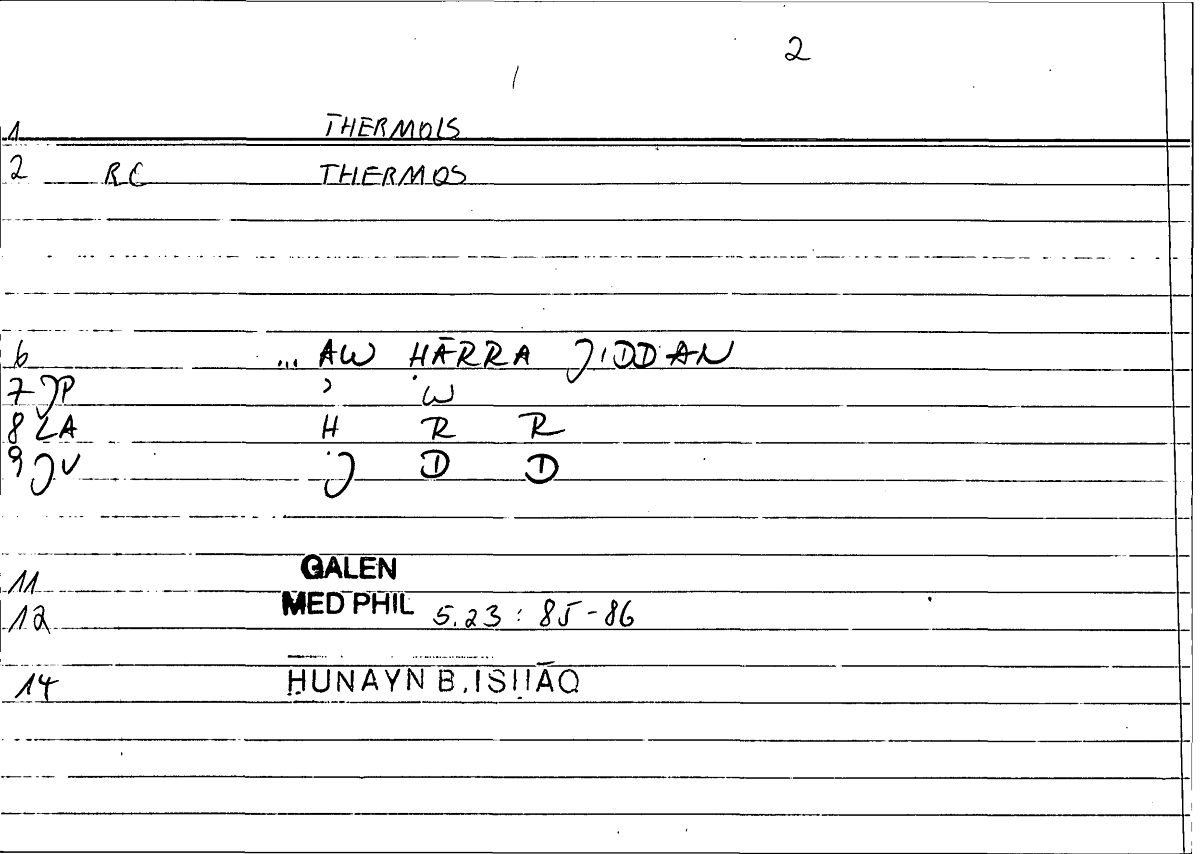 2
1 THERMOIS
2 RC THERMOS
6 ... AW ḤĀRRA JIDDAN
7 JP ʾ W
8 LA Ḥ R R
9 JV J D D
11 GALEN
12 MED PHIL 5.23 : 85-86
14 ḤUNAYN B. ISḤĀQ